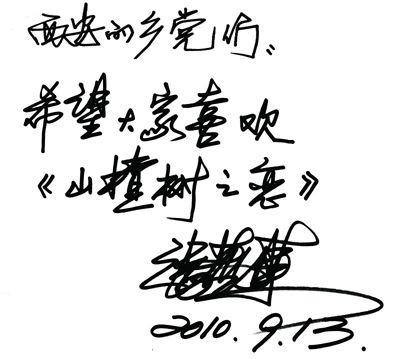 西安的乡党们：
希望大家喜欢
《山楂树之恋》
2010.9.13.